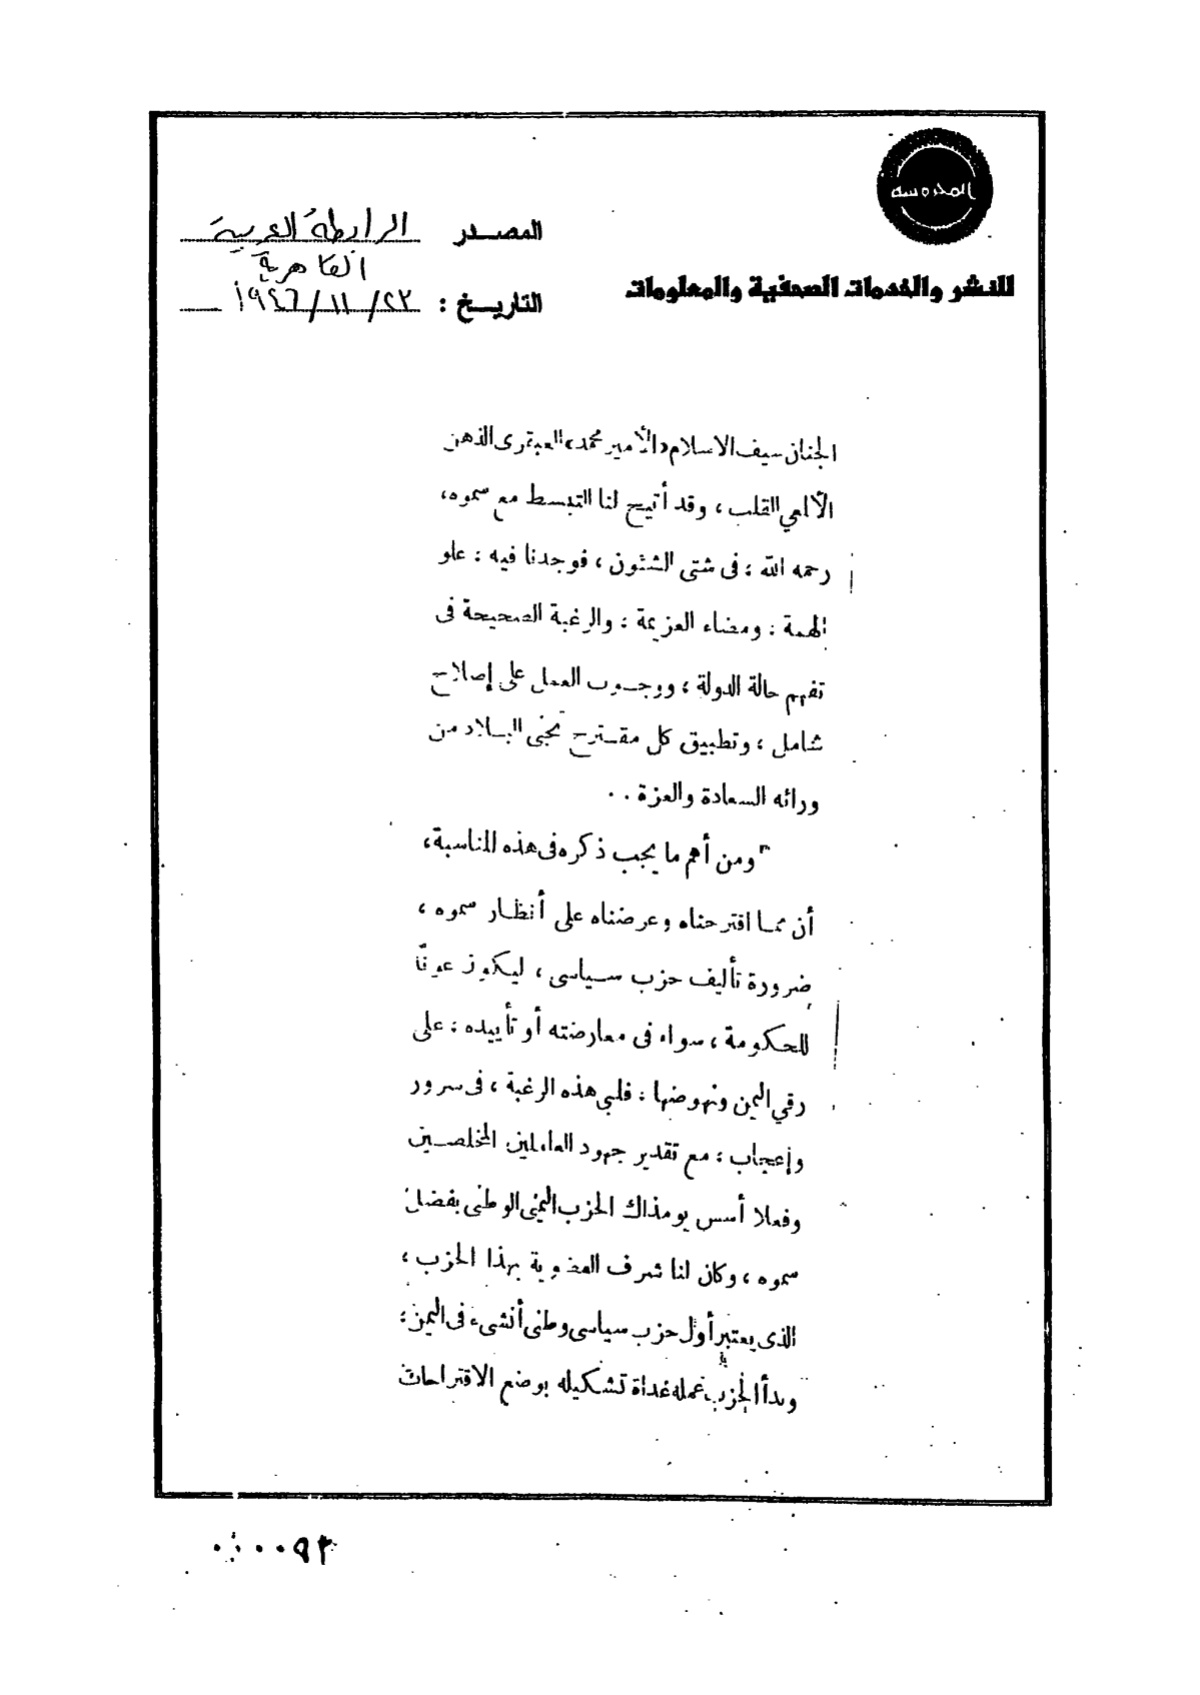 المحروسة
للنشر والخدمات الصحفية والمعلومات
المصدر الرابطة العربية
القاهرية
التاريخ : ٢٣/١١/١٩٤٦
الجنان سيف الاسلام «الأمير محمد» العبقرى الذهن
الألمعي القلب ، وقد أتيح لنا التبسط مع سموه ،
رحمه الله : فى شتى الشئون ، فوجدنا فيه : علو
الهمة : ومضاء العزيمة : والرغبة الصحيحة فى
تفهم حالة الدولة ، ووجوب العمل على إصلاح
شامل ، وتطبيق كل مقترح تجنى البلاد من
ورائه السعادة والعزة . .
ومن أهم ما يجب ذكره فى هذه المناسبة ،
أن مما اقترحناه وعرضناه على أنظار سموه ،
ضرورة تأليف حزب سياسى ، ليكون عونًا
للحكومة ، سواء فى معارضته أو تأييده : على
رقي اليمن ونهوضها : فلبى هذه الرغبة ، فى سرور
وإعجاب : مع تقدير جهود العاملين المخلصين
وفعلا أسس يومذاك الحزب اليمنى الوطنى بفضل
سموه ، وكان لنا شرف العضوية بهذا الحزب ،
الذى يعتبر أول حزب سياسى وطنى أنشىء فى اليمن :
وبدأ الحزب عمله غداة تشكيله بوضع الاقتراحات
٠٠٠٠٩٢